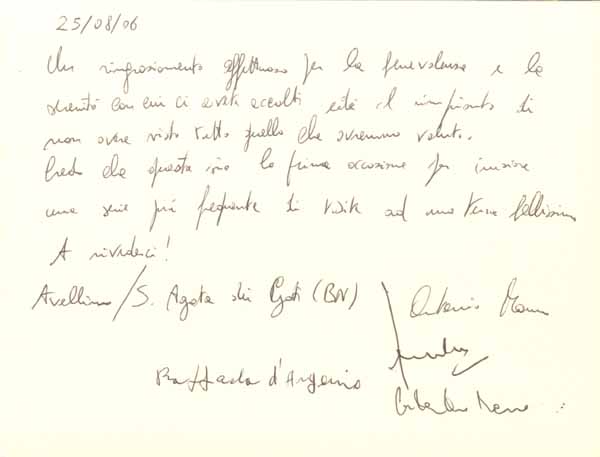 25/08/06
Un ringraziamento affettuoso per la benevolenza e la
con cui ci avete accolti ed il rimpianto di
non avere visto tutto quello che avremmo voluto.
Credo che questa sia la prima occasione per iniziare
una serie più frequente di visite ad una terra bellissima
A rivederci!
Avellino / S. Agata dei Goti (BN)
Antonio
Raffaela d'Argenio